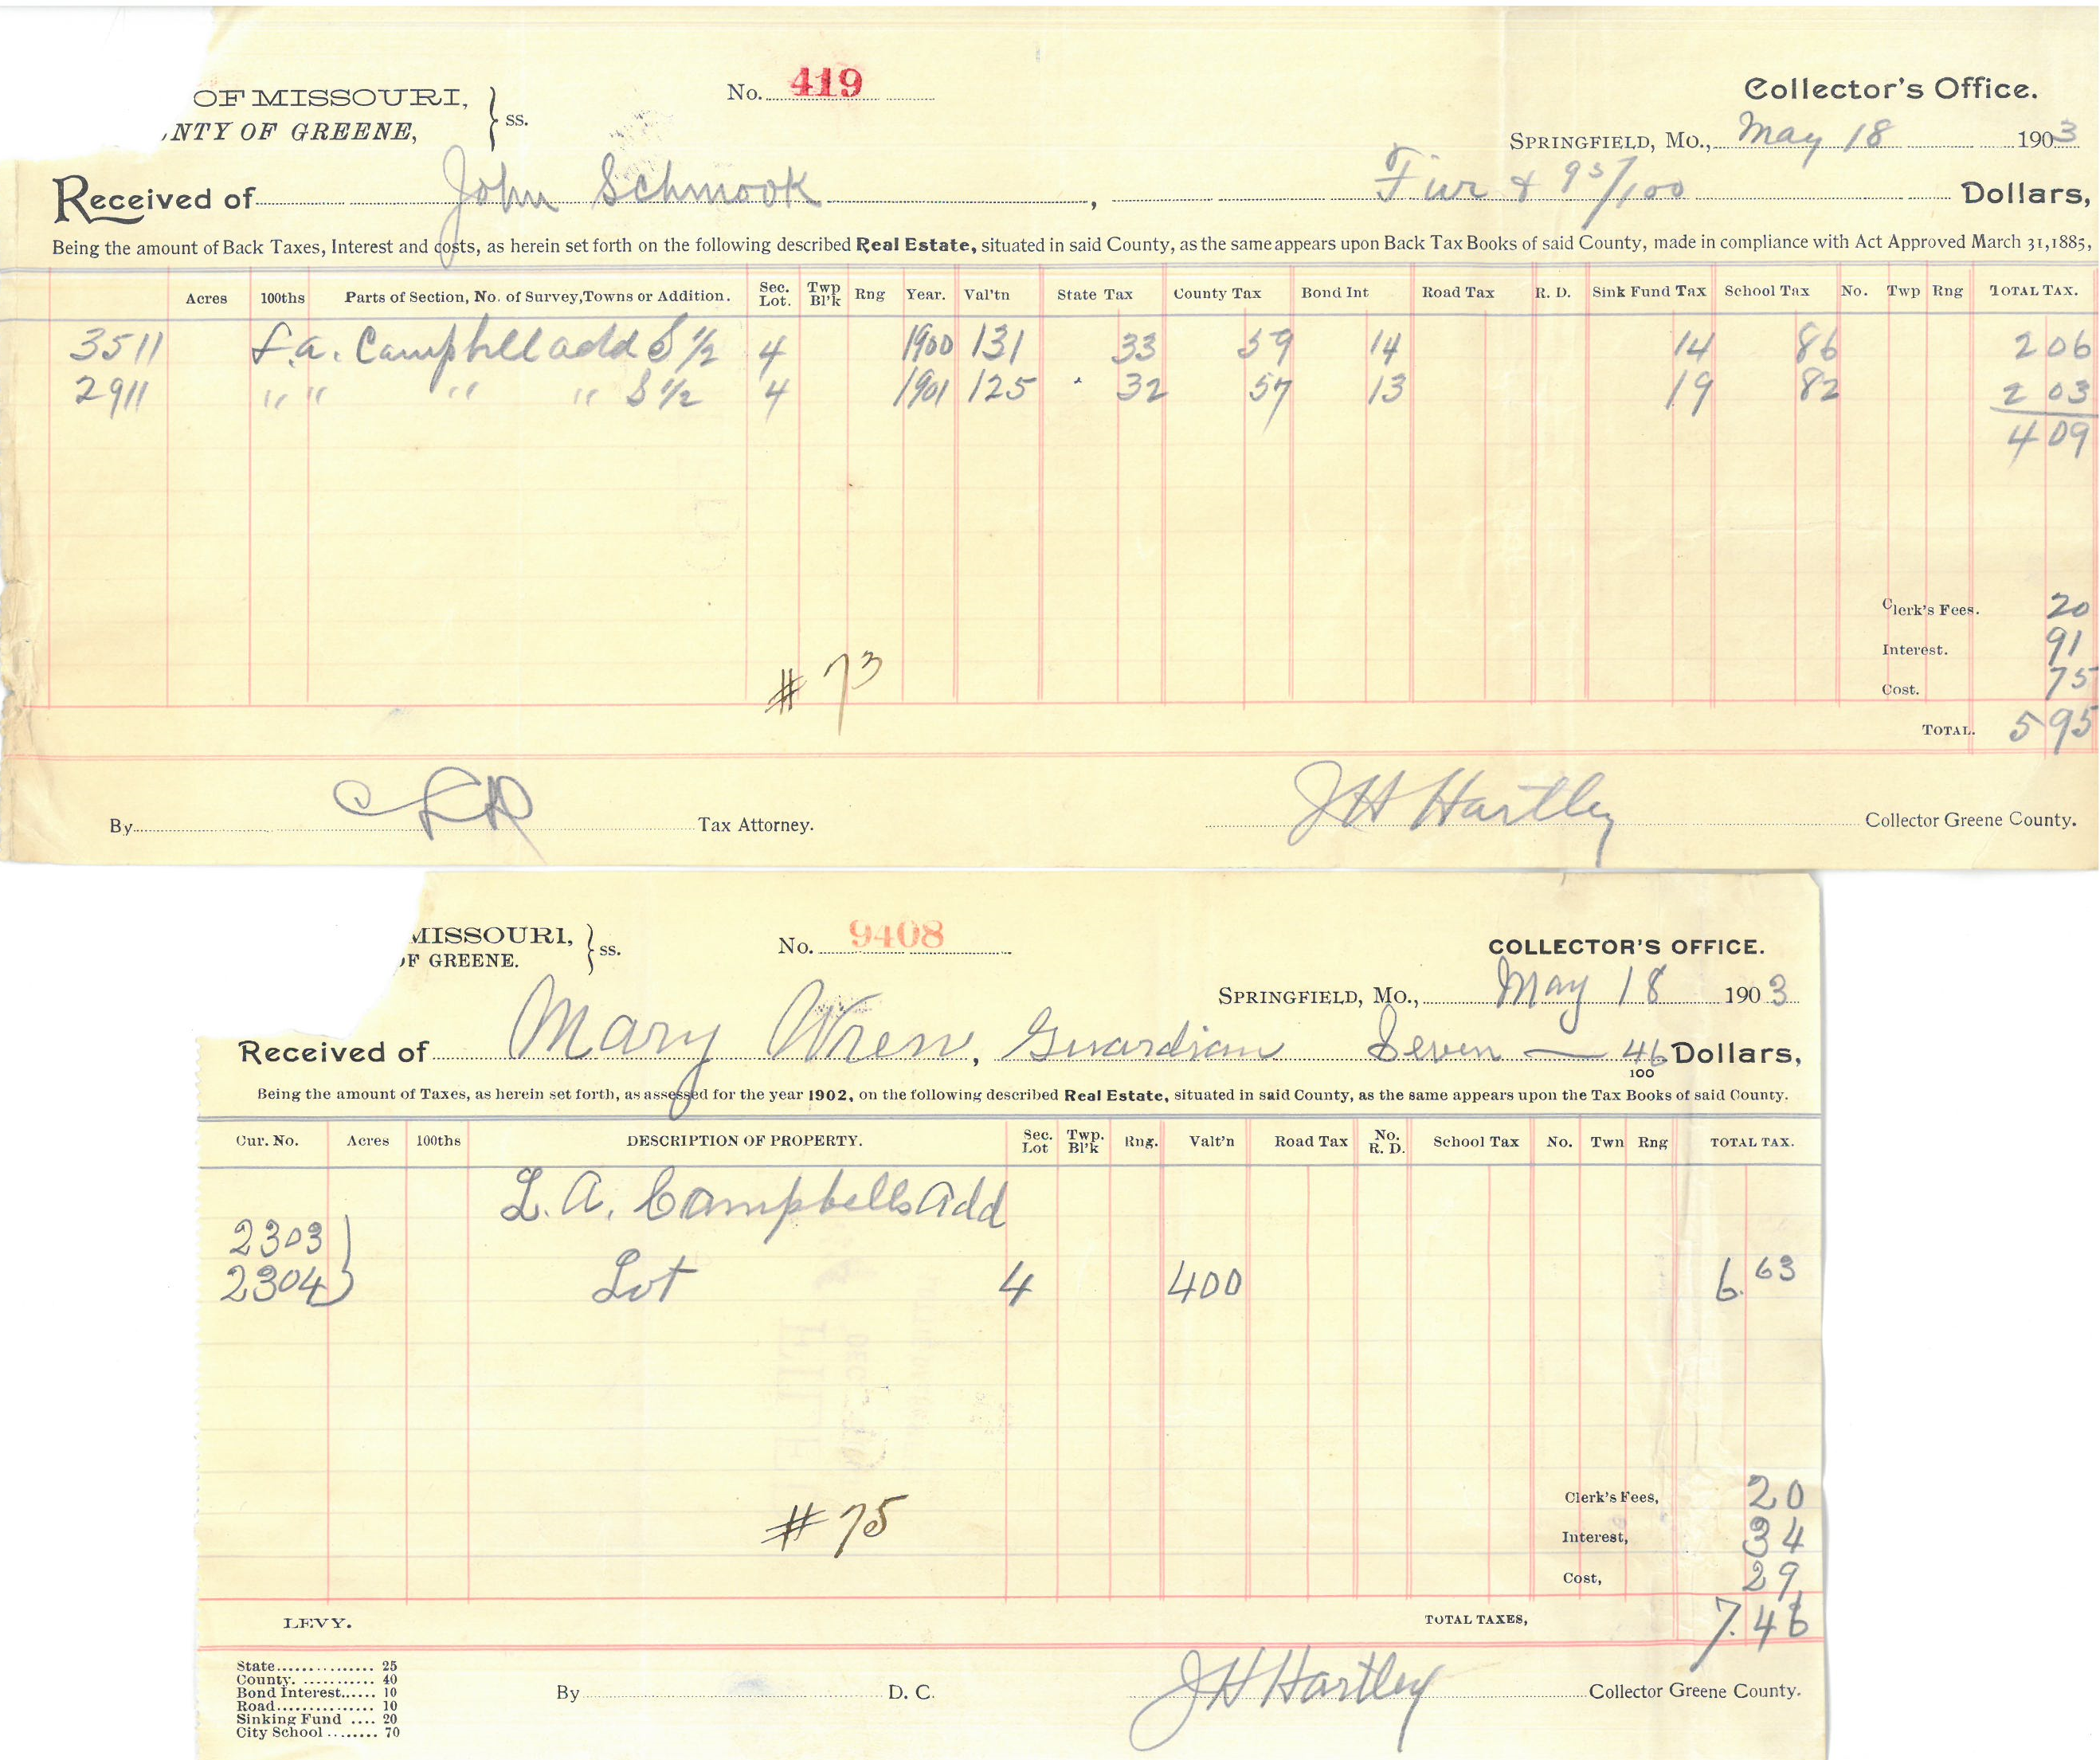 OF MISSOURI, } ss. No. 419 Collector's Office.
NTY OF GREENE, SPRINGFIELD, MO., May 18 1903
Received of John Schmook, Five & 95/100 Dollars,
Being the amount of Back Taxes, Interest and costs, as herein set forth on the following described Real Estate, situated in said County, as the same appears upon Back Tax Books of said County, made in compliance with Act Approved March 31, 1885,
Acres 100ths Parts of Section, No. of Survey, Towns or Addition. Sec. Lot. Twp Bl'k Rng Year. Val'tn State Tax County Tax Bond Int Road Tax R. D. Sink Fund Tax School Tax No. Twp Rng TOTAL TAX.
3511 L.a. Campbell add S 1/2 4 1900 131 33 59 14 14 86 2 06
2911 " " " " S 1/2 4 1901 125 32 57 13 19 82 2 03
4 09
Clerk's Fees. 20
Interest. 91
# 73
Cost. 75
TOTAL. 5 95
By Tax Attorney. JH Hartley Collector Greene County.
MISSOURI, } ss. No. 9408 COLLECTOR'S OFFICE.
OF GREENE. SPRINGFIELD, MO., May 18 1903
Received of Mary Wren, Guardian Seven — 46/100 Dollars,
Being the amount of Taxes, as herein set forth, as assessed for the year 1902, on the following described Real Estate, situated in said County, as the same appears upon the Tax Books of said County.
Cur. No. Acres 100ths DESCRIPTION OF PROPERTY. Sec. Lot Twp. Bl'k Rng. Valt'n Road Tax No. R. D. School Tax No. Twn Rng TOTAL TAX.
L. A. Campbells Add
2303 }
2304 } Lot 4 400 6.63
Clerk's Fees, 20
# 75
Interest, 34
Cost, 29
LEVY. TOTAL TAXES, 7.46
State 25
County. 40
Bond Interest 10
Road 10
Sinking Fund 20
City School 70
By D. C. JH Hartley Collector Greene County.